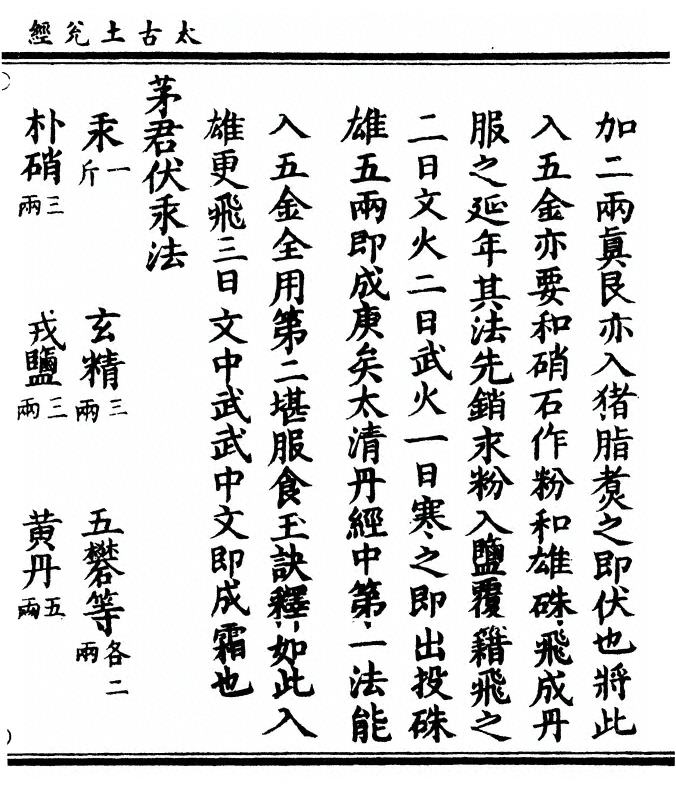 太古土兌經
加二兩真艮亦入猪脂煑之即伏也將此
入五金亦要和硝石作粉和雄硃飛成丹
服之延年其法先銷求粉入鹽覆籍飛之
二日文火二日武火一日寒之即出投硃
雄五兩即成庚矣太清丹經中第一法能
入五金全用第二堪服食玉訣釋如此入
雄更飛三日文中武武中文即成霜也
茅君伏汞法
汞一斤 玄精三兩 五礬等各二兩
朴硝三兩 戎鹽三兩 黃丹五兩